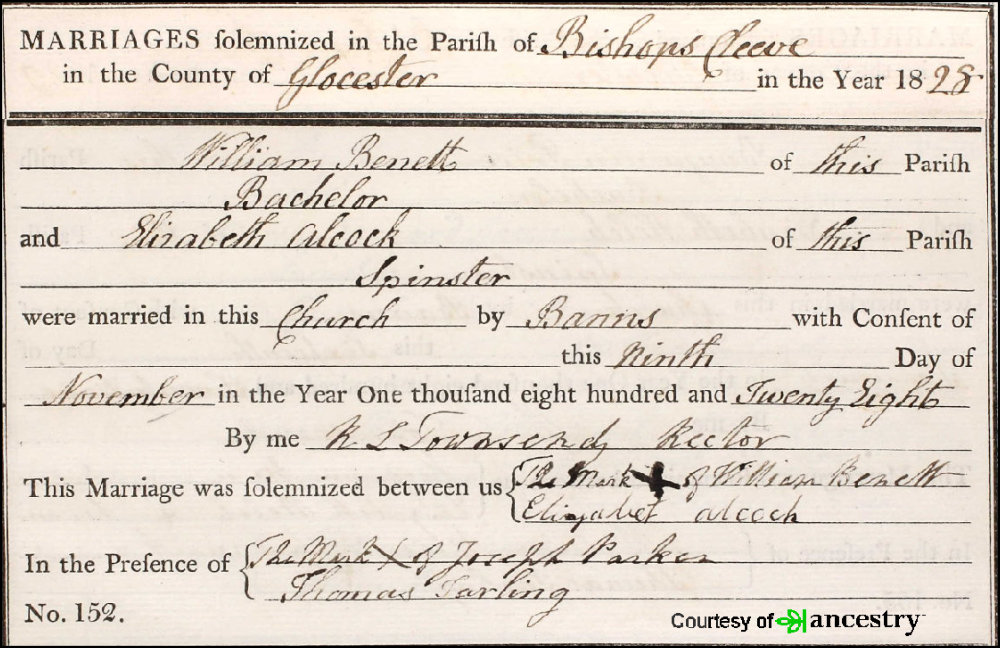 MARRIAGES ſolemnized in the Pariſh of Bishops Cleeve
in the County of Glocester in the Year 1828
William Benett of this Pariſh
Bachelor
and Elizabeth Alcock of this Pariſh
Spinster
were married in this Church by Banns with Conſent of
this Ninth Day of
November in the Year One thouſand eight hundred and Twenty Eight
By me R L Townsend Rector
This Marriage was ſolemnized between us { The Mark X of William Benett
Elizabet alcock
In the Preſence of { The Mark X of Joseph Parker
Thomas Tarling
No. 152.
Courtesy of ancestry